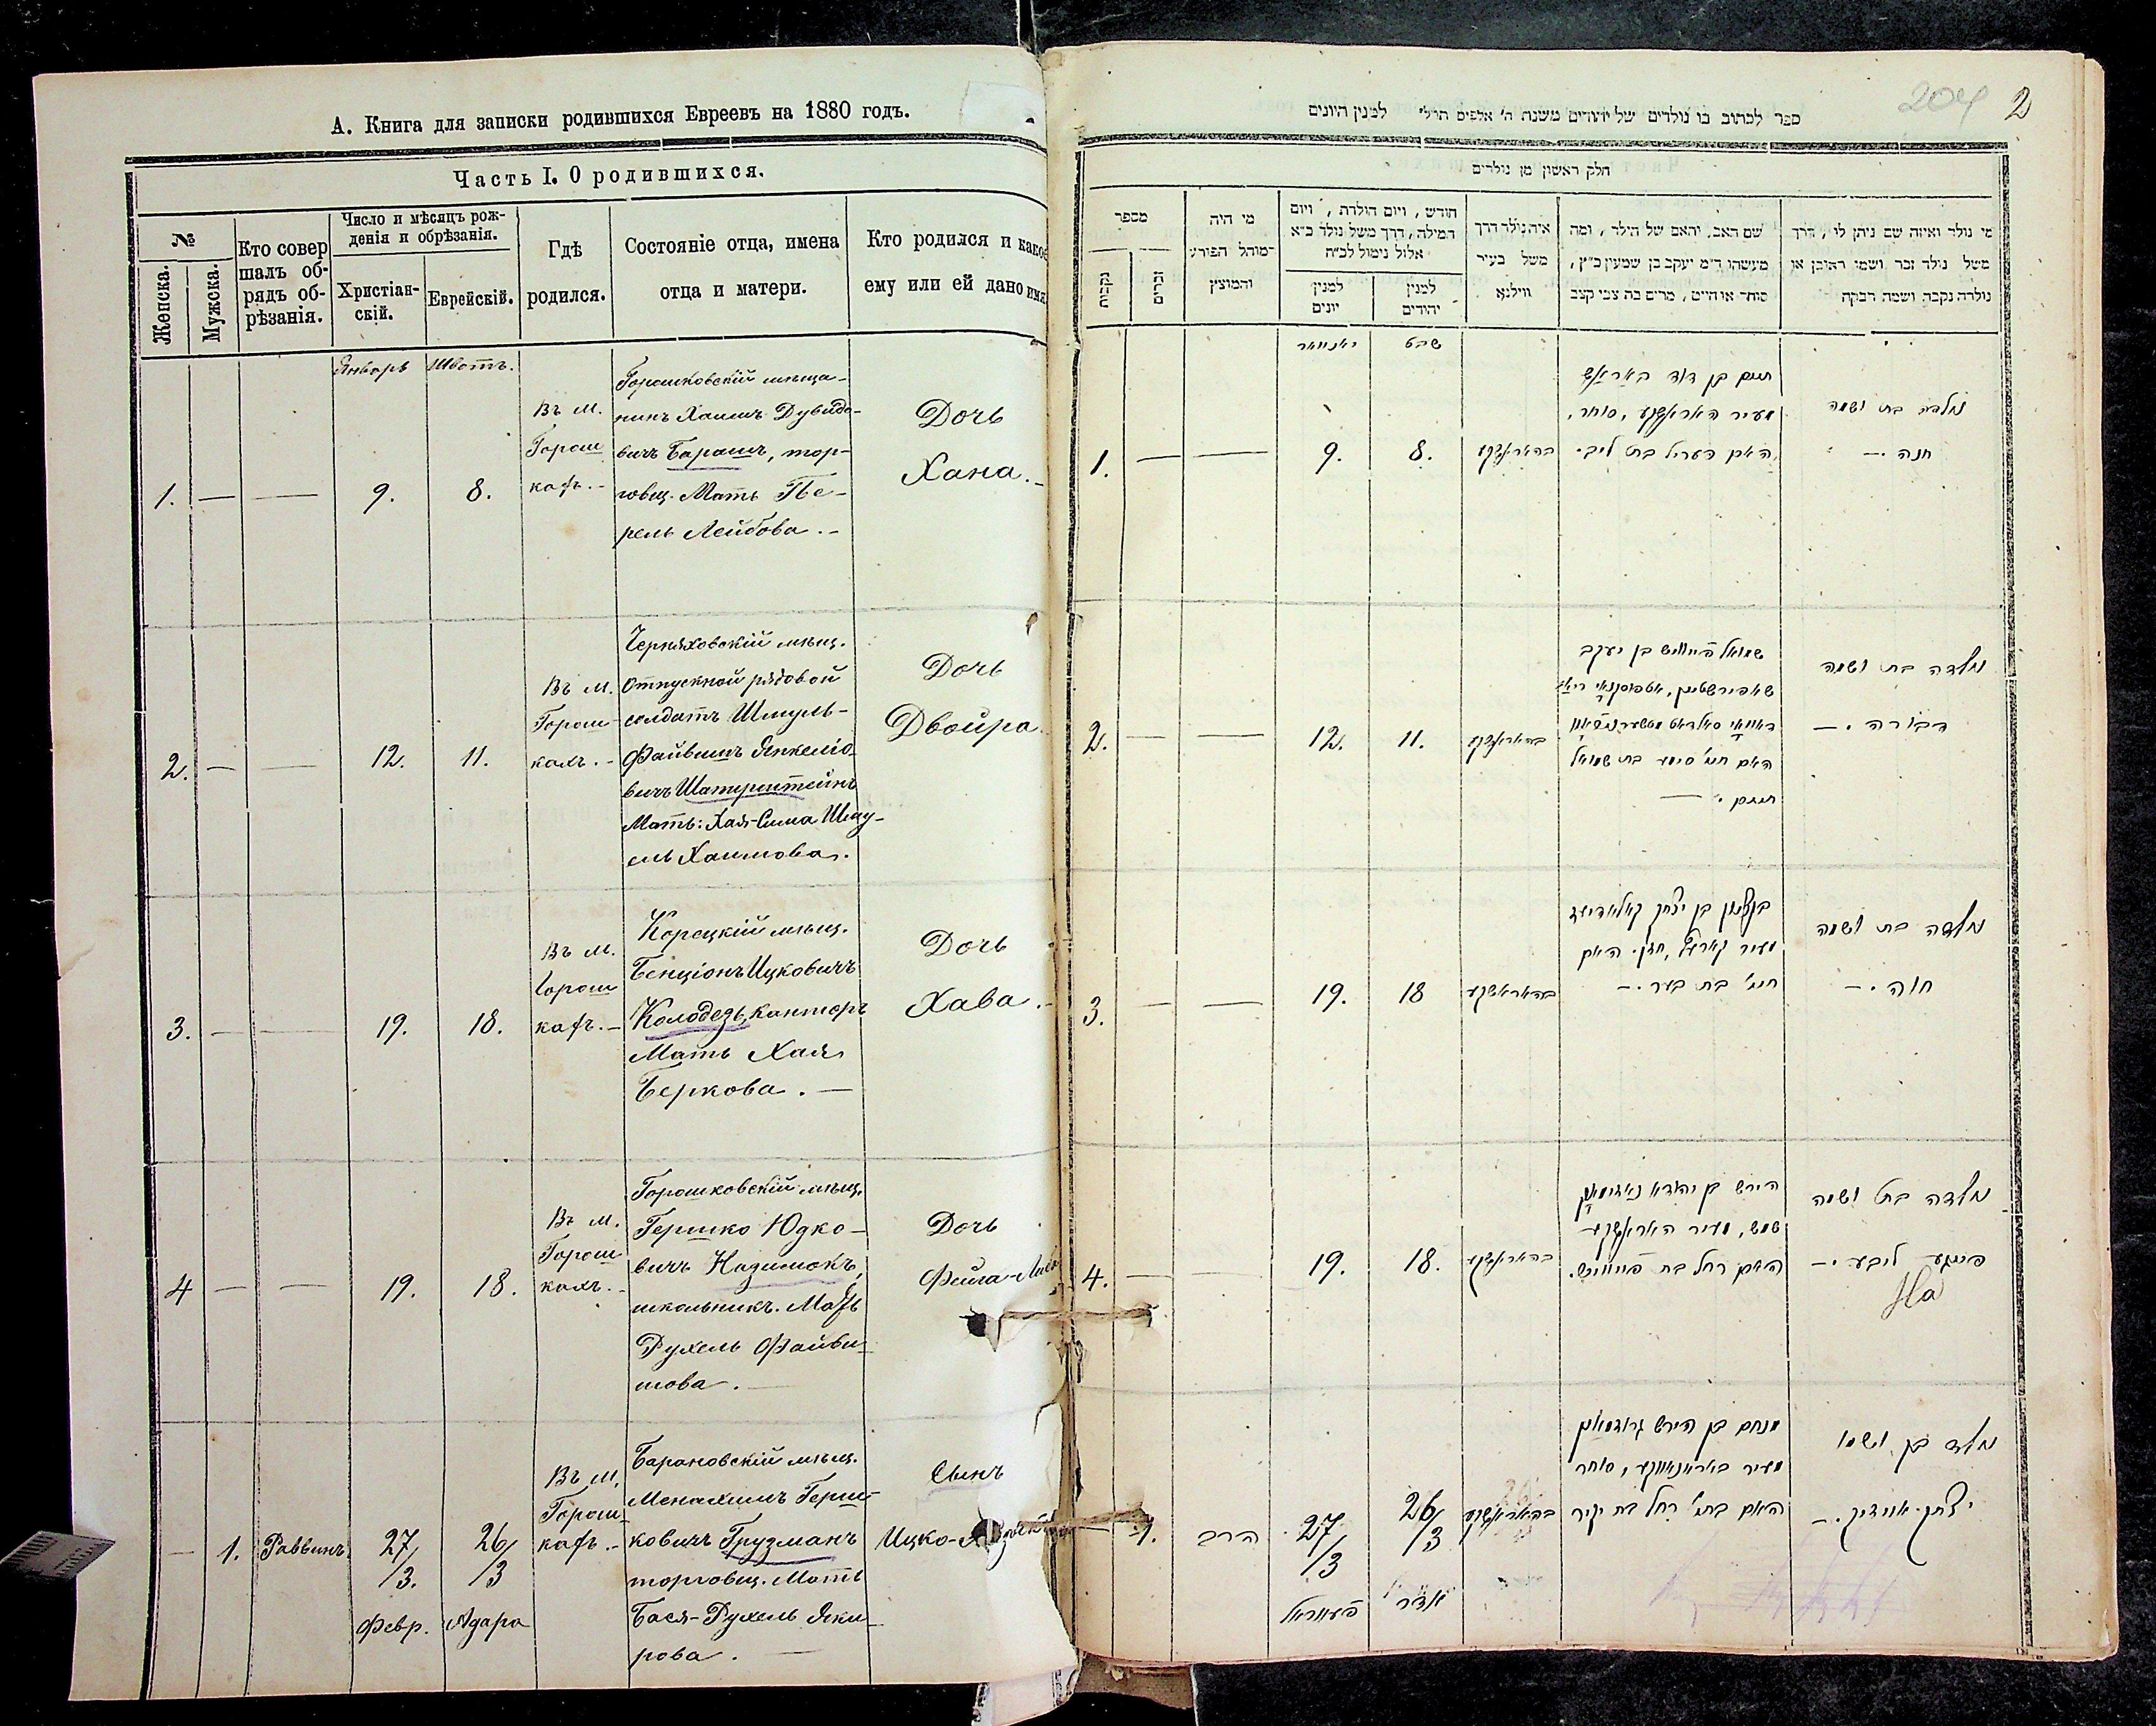 А. Книга для записки родившихся Евреевъ на 1880 годъ.
Часть I. О родившихся.
№
Женска.
Мужска.
Кто совер
шалъ об-
рядъ об-
рѣзанія.
Число и мѣсяцъ рож-
денія и обрѣзанія.
Христіан-
скій.
Еврейскій.
Гдѣ
родился.
Состояніе отца, имена
отца и матери.
Кто родился и какое
ему или ей дано имя
Январь
Шватъ.
1.
—
—
9.
8.
Въ м.
Горош
кахъ.-
Горошковскій мѣща-
нинъ Хаимъ Дувидо-
вичъ Барашъ, тор-
говец. Мать Пе-
рель Лейбова.-
Дочь
Хана.-
2.
—
—
12.
11.
Въ м.
Горош-
кахъ.-
Черняховскій мѣщ.
отпускной рядовой
солдатъ Шмуль-
Файвишъ Янкеліо-
вичъ
Мать: Хая-Сима Шму-
ель Хаимова.
Дочь
Двойра.
3.
—
—
19.
18.
Въ м.
Горош
кахъ.-
Корецкій мѣщ.
Бенціонъ Ицковичъ
Колодезь, канторъ
Мать Хая
Беркова.-
Дочь
Хава.-
4
—
—
19.
18.
Въ м.
Горош
кахъ.-
Горошковскій мѣщ.
Гершко Юдко-
вичъ
школьникъ. Мать
Рухель Файви-
шова.-
Дочь
Фейга-
—
1.
Раввинъ
27/
/3.
Февр.
26/
/3
Адара
Въ м.
Горош-
кахъ.-
Барановскій мѣщ.
Менахимъ Герш-
ковичъ Грузманъ
торговец. Мать
Бася-Рухель Яки-
рова.-
Сынъ
Ицко-
204
2
ספר לכתוב בו נולדים של יהודים משנת ה' אלפים תר"מ למנין היונים
חלק ראשון מן נולדים
מספר
נקבות
זכרים
מי היה
המוהל הפורע
והמוצץ
חודש, ויום הולדת, ויום
המילה, דרך משל נולד כ"א
אלול נימול לכ"ח
למנין
יונים
למנין
יהודים
איה נולד דרך
משל בעיר
ווילנא
שם האב, והאם של הילד, ומה
מעשהו ד"מ יעקב בן שמעון כ"ץ,
סוחר או חייט, מרים בת צבי קצב
מי נולד ואיזה שם ניתן לו, דרך
משל נולד זכר ושמו ראובן או
נולדה נקבה ושמה רבקה
יאנוואר
שבט
1.
—
—
9.
8.
בהאראשקע
חיים בן דוד באראש
מעיר האראשקע, סוחר,
האם פעריל בת ליב.
נולדה בת ושמה
חנה.-
2.
—
—
12.
11.
בהאראשקע
שמואל פייוויש בן יעקב
האם חי' סימע בת שמואל
חיים.-
נולדה בת ושמה
דבורה.-
3.
—
—
19.
18
בהאראשקע
בנציון בן יצחק קאלאדיעז
מעיר קארעץ, חזן. האם
חי' בת בער.-
נולדה בת ושמה
חוה.-
4.
—
—
19.
18.
בהאראשקע
הירש בן יהודא
שמש, מעיר האראשקע
האם רחל בת פייוויש.
נולדה בת ושמה
פייגע ליבע.-
—
1.
הרב
27/
/3
פעווראל
26/
/3
אדר
בהאראשקע
מנחם בן הירש גרוזמאן
מעיר באראנאווקע, סוחר
האם בתי' רחל בת יקיר
נולד בן ושמו
יצחק